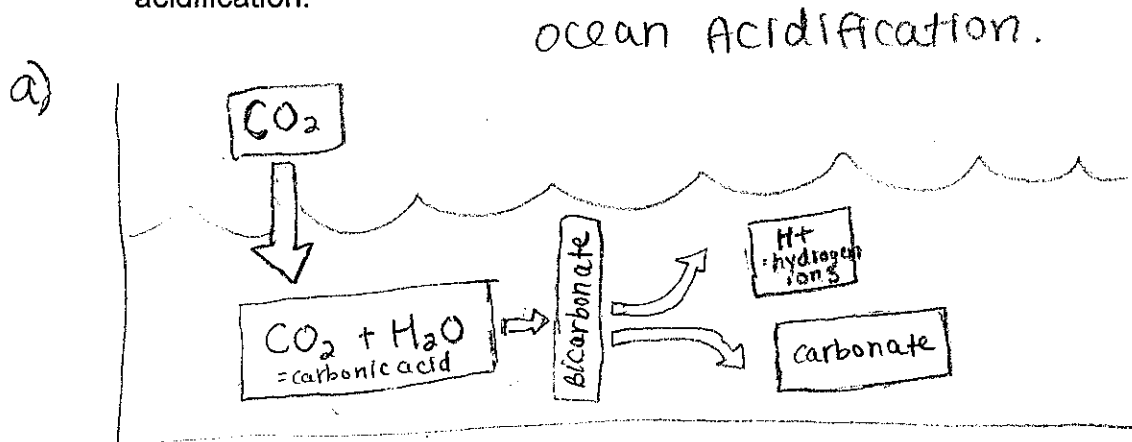 acidification.
ocean Acidification.
a)
CO₂
CO₂ + H₂O
=carbonic acid
Bicarbonate
H+
=hydrogen
ions
carbonate